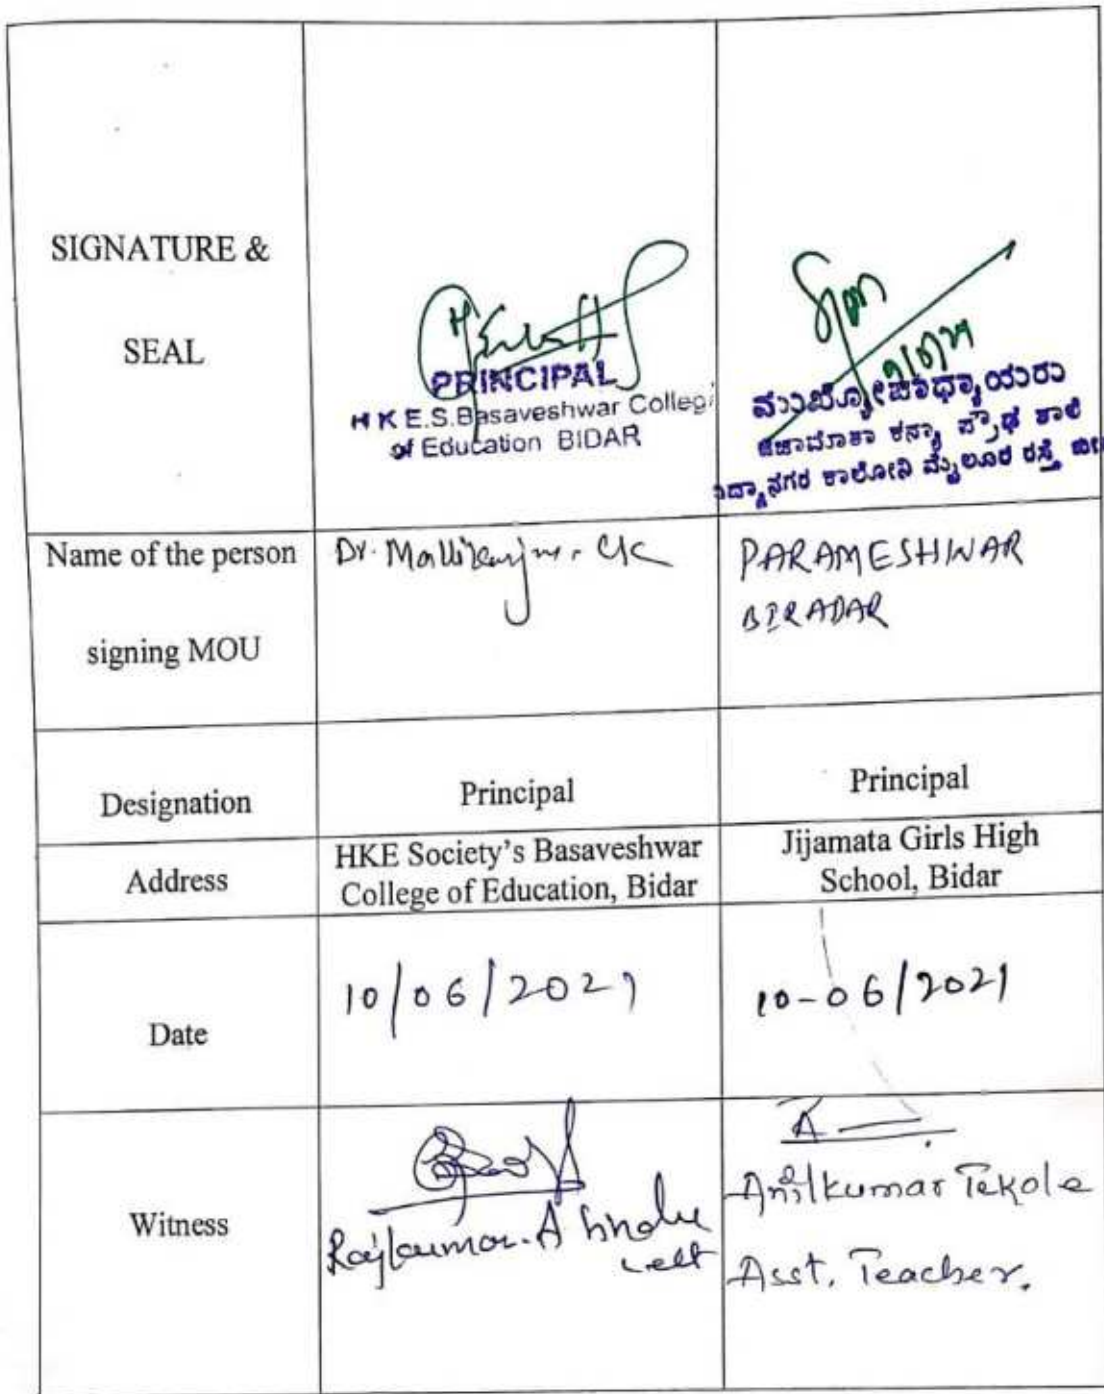 SIGNATURE &
SEAL
PRINCIPAL
H K E.S.Basaveshwar College
of Education BIDAR
ಮುಖ್ಯೋಪಾಧ್ಯಾಯರು
ಜಿಜಾಮಾತಾ ಕನ್ಯಾ ಪ್ರೌಢ ಶಾಲೆ
ವಿದ್ಯಾನಗರ ಕಾಲೋನಿ ಮೈಲೂರ ರಸ್ತೆ
Name of the person
signing MOU
Dr. Mallikarjun. CK
PARAMESHWAR
BIRADAR
Designation
Principal
Principal
Address
HKE Society's Basaveshwar
College of Education, Bidar
Jijamata Girls High
School, Bidar
Date
10/06/2021
10-06/2021
Witness
Rajkumar. A
Anilkumar Tekole
Asst. Teacher.